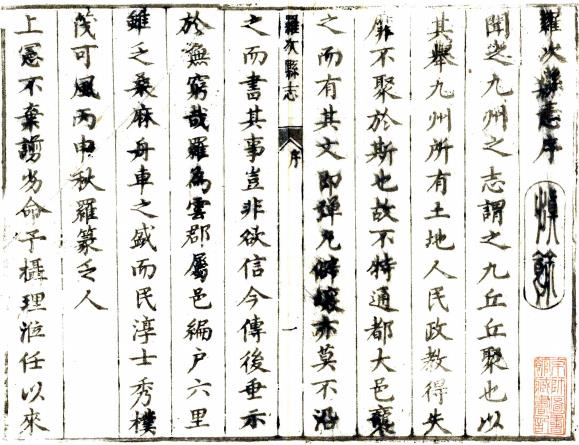 羅次縣志序
聞之九州之志謂之九丘丘聚也以
其舉九州所有土地人民政教得失
靡不聚於斯也故不特通都大邑
之而有其文即彈丸僻壤亦莫不沿
羅次縣志 序 一
之而書其事豈非欲信今傳後垂示
於無窮哉羅為雲郡屬邑編戶六里
雖乏桑麻舟車之盛而民淳士秀樸
茂可風丙申秋羅篆乏人
上憲不棄謭劣命予攝理涖任以來
京師圖書
館藏書記